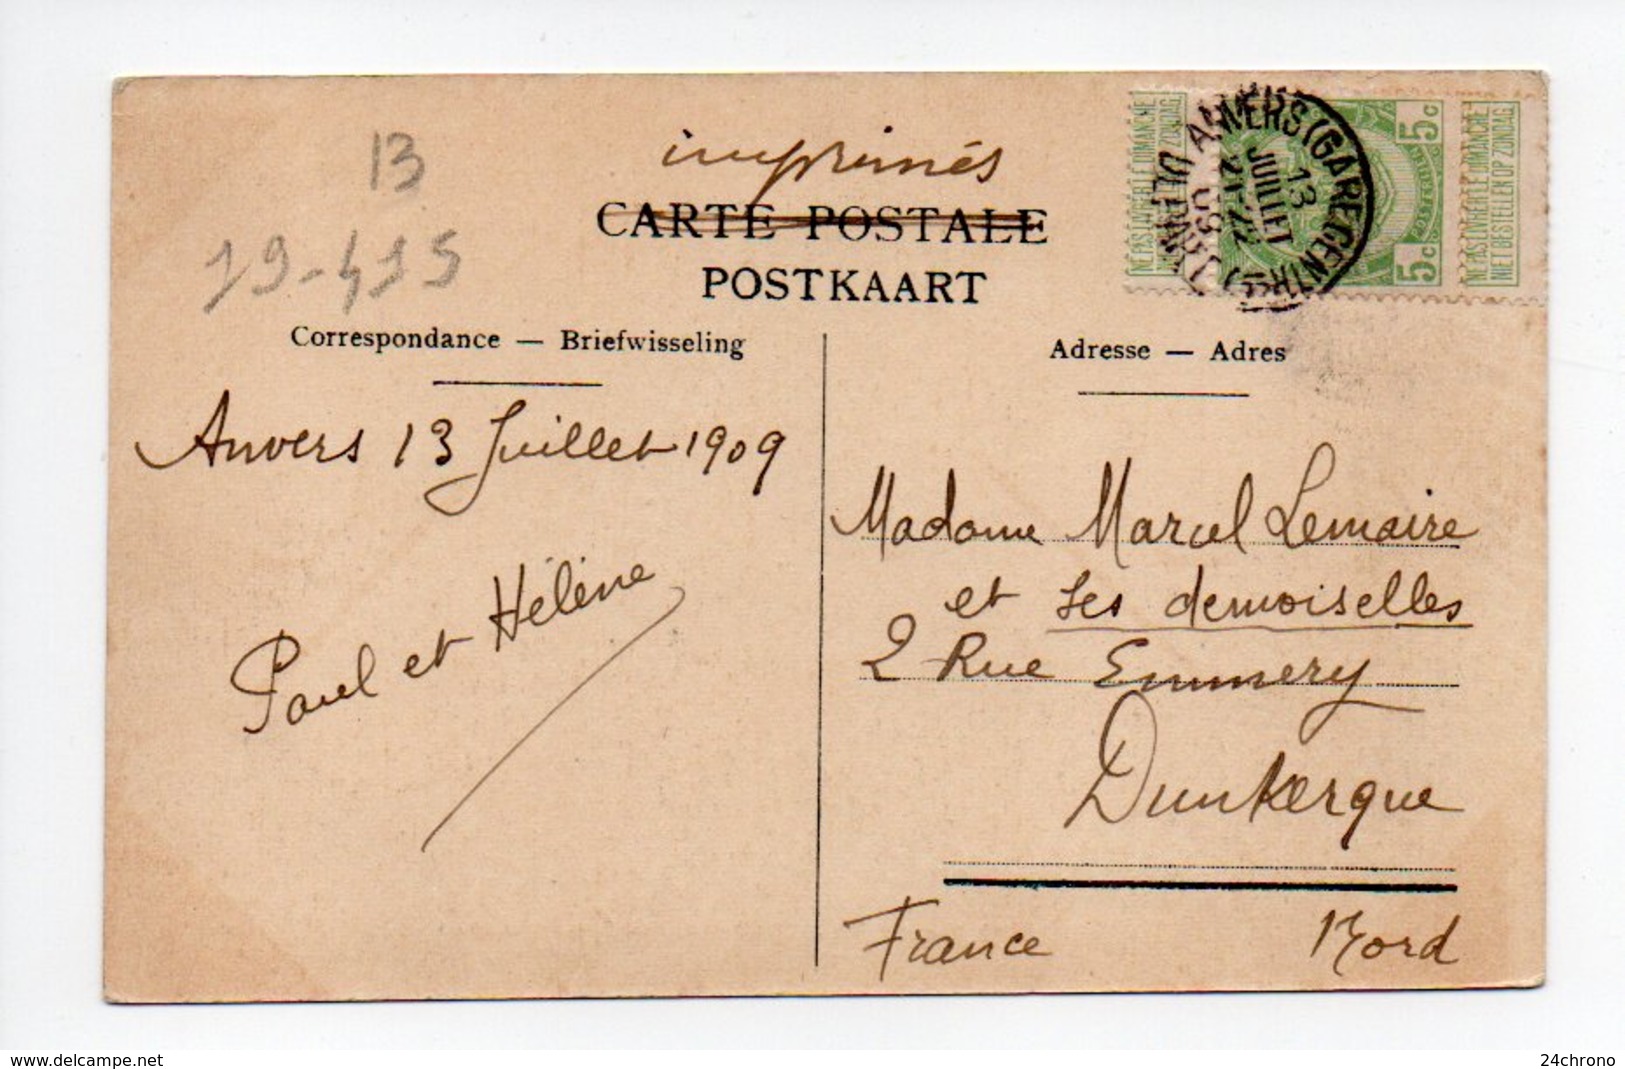 13
19-415
imprimés
CARTE POSTALE
POSTKAART
Correspondance — Briefwisseling
Adresse — Adres
ANVERS (GARE CENTRALE)
13
JUILLET
21-22
09
5c 5c
NE PAS LIVRER LE DIMANCHE
NIET BESTELLEN OP ZONDAG
Anvers 13 Juillet 1909
Paul et Hélène
Madame Marcel Lemaire
et ses demoiselles
2 Rue Emmery
Dunkerque
France Nord
www.delcampe.net
24chrono